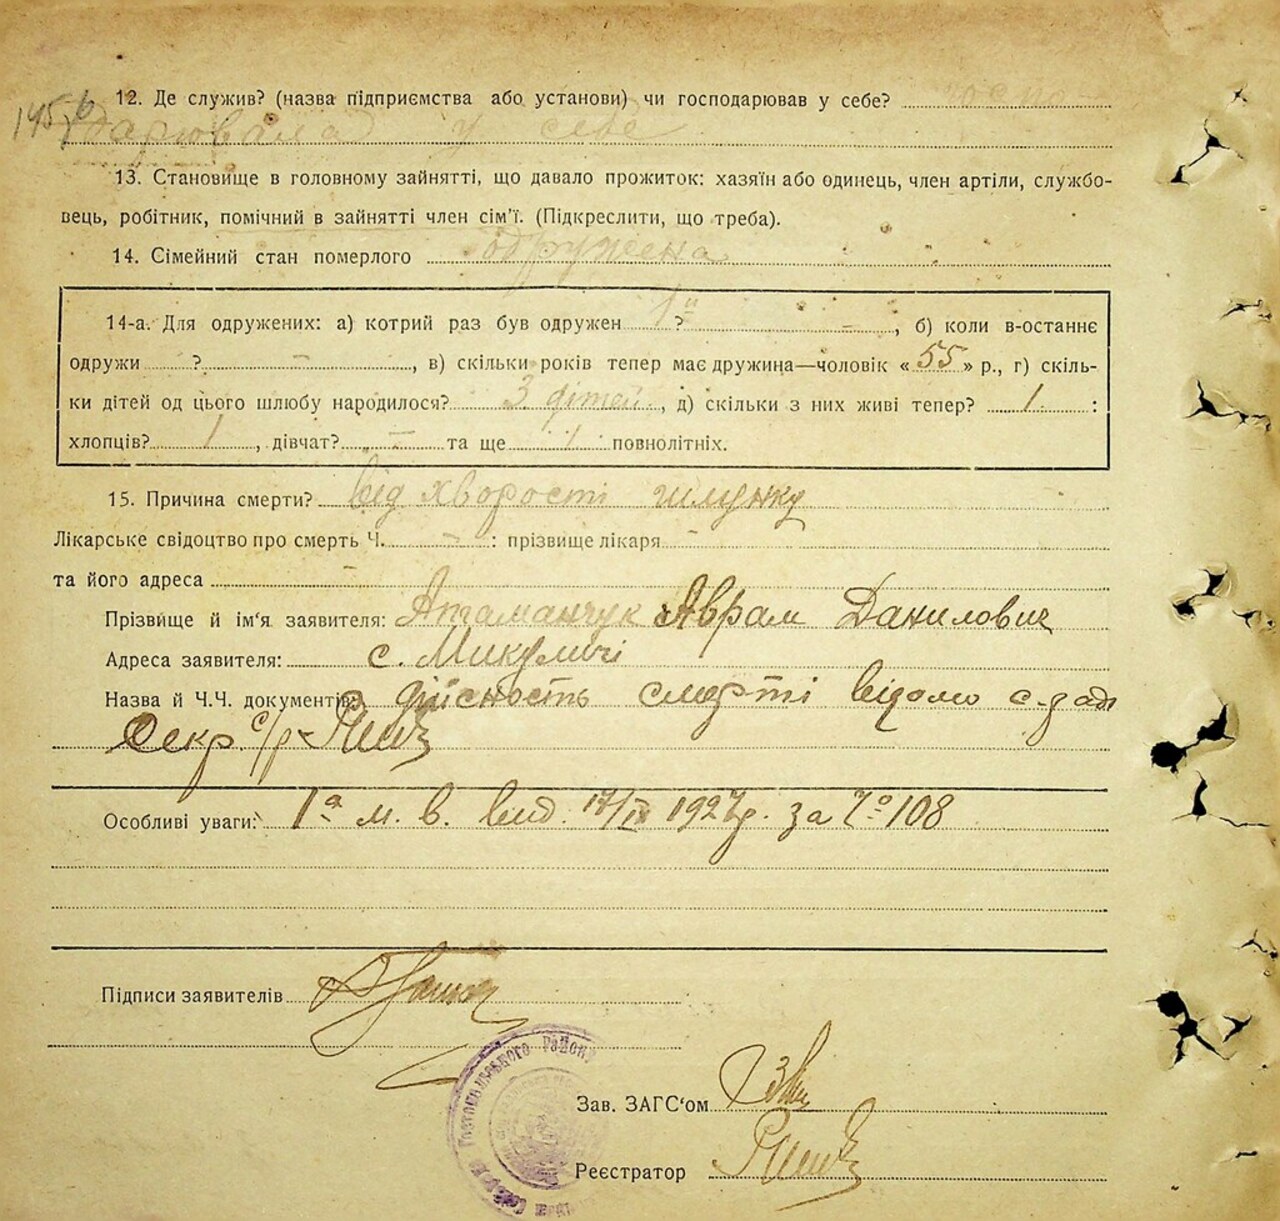 145
12. Де служив? (назва підприємства або установи) чи господарював у себе? госпо-
дарювала у себе
13. Становище в головному зайнятті, що давало прожиток: хазяїн або одинець, член артіли, службо-
вець, робітник, помічний в зайнятті член сім'ї. (Підкреслити, що треба).
14. Сімейний стан померлого одружена
14-а. Для одружених: а) котрий раз був одружен 1й ? –, б) коли в-останнє
одружи ? –, в) скільки років тепер має дружина—чоловік « 55 » р., г) скіль-
ки дітей од цього шлюбу народилося? 3 дітей, д) скільки з них живі тепер? 1 :
хлопців? 1, дівчат? – та ще 1 повнолітніх.
15. Причина смерти? від хворости шлунку
Лікарське свідоцтво про смерть Ч. – : прізвище лікаря –
та його адреса –
Прізвище й ім'я заявителя: Атаманчук Аврам Данилович
Адреса заявителя: с. Микуличі
Назва й Ч.Ч. документів: дійсність смерті відомо с.раді
Секр. с/р
Особливі уваги: 1а м. в. вид. 17/IX 1927р. за № 108
Підписи заявителів
Гостомельського Району
Зав. ЗАГС'ом
Реєстратор